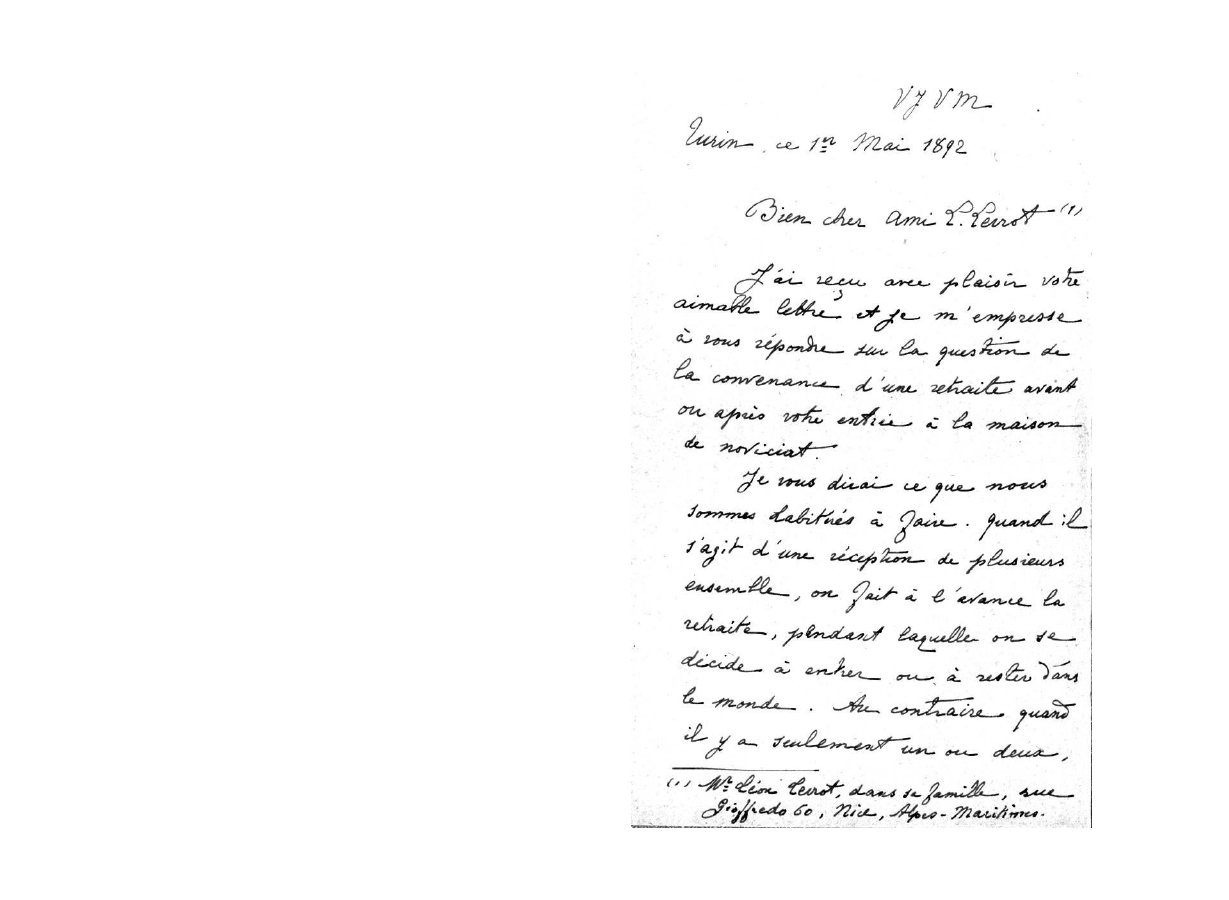 V J V M
Turin ce 1er Mai 1892
Bien cher ami L. Perrot (1)
J'ai reçu avec plaisir votre
aimable lettre, et je m'empresse
à vous répondre sur la question de
la convenance d'une retraite avant
ou après votre entrée à la maison
de noviciat.
Je vous dirai ce que nous
sommes habitués à faire. Quand il
s'agit d'une réception de plusieurs
ensemble, on fait à l'avance la
retraite, pendant laquelle on se
décide à entrer ou à rester dans
le monde. Au contraire quand
il y a seulement un ou deux,
(1) Mr Léon Perrot, dans sa famille, rue
Gioffredo 60, Nice, Alpes-Maritimes.